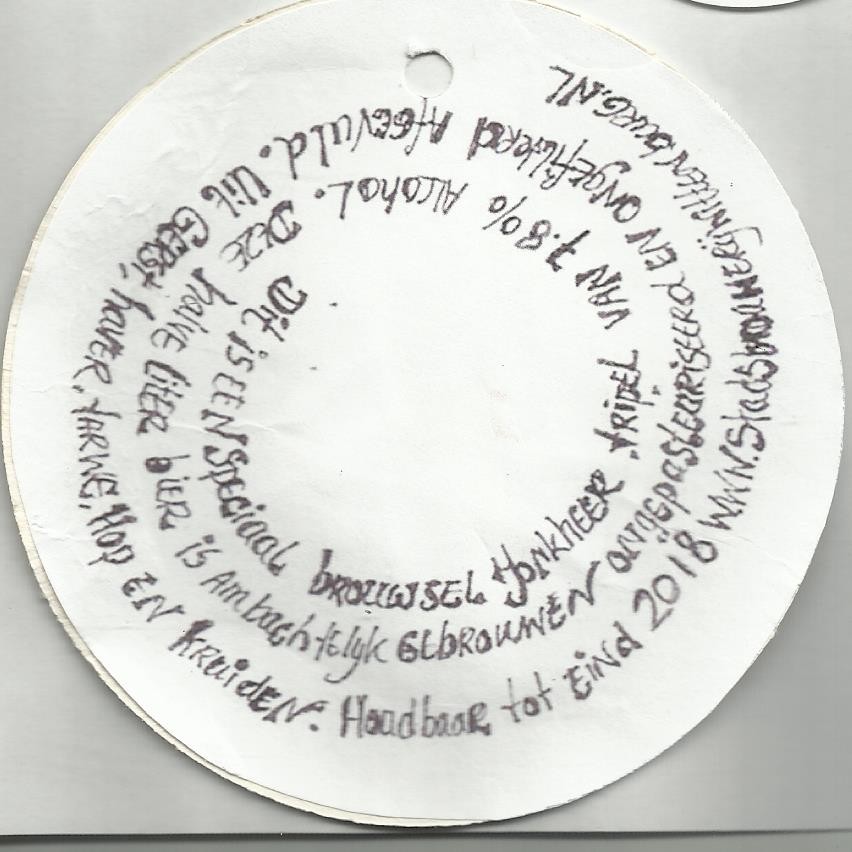 Dit is EEN SpEciaal brouwsEL JonkhEER tripEL VAN 7.8% Alcohol.
DEZE halvE litER biER is AmbachtElijk GEbrouwEN ongEpastEuriseerd EN ONgEfiltERd AfgEvuld.
Uit GERSt, havER, tARWE, Hop EN kRuidEN. Houdbaar tot EiNd 2018 WWW.StadsbrouwERijWittENburg.NL